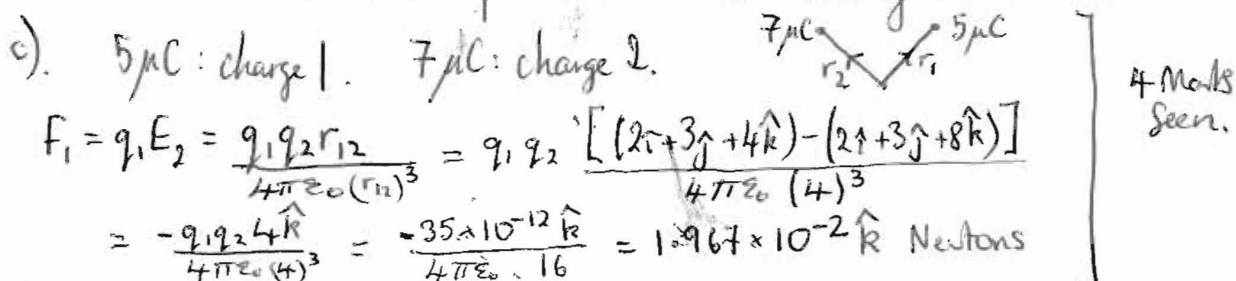 c). 5μC : charge 1. 7μC : charge 2. 7μC 5μC
r₂ r₁
F₁ = q₁E₂ = q₁q₂r₁₂ / 4πε₀(r₁₂)³ = q₁q₂ [(2î+3ĵ+4k̂)-(2î+3ĵ+8k̂)] / 4πε₀ (4)³
= -q₁q₂4k̂ / 4πε₀(4)³ = -35×10⁻¹² k̂ / 4πε₀ . 16 = 1.967 × 10⁻² k̂ Newtons
4 Marks
Seen.